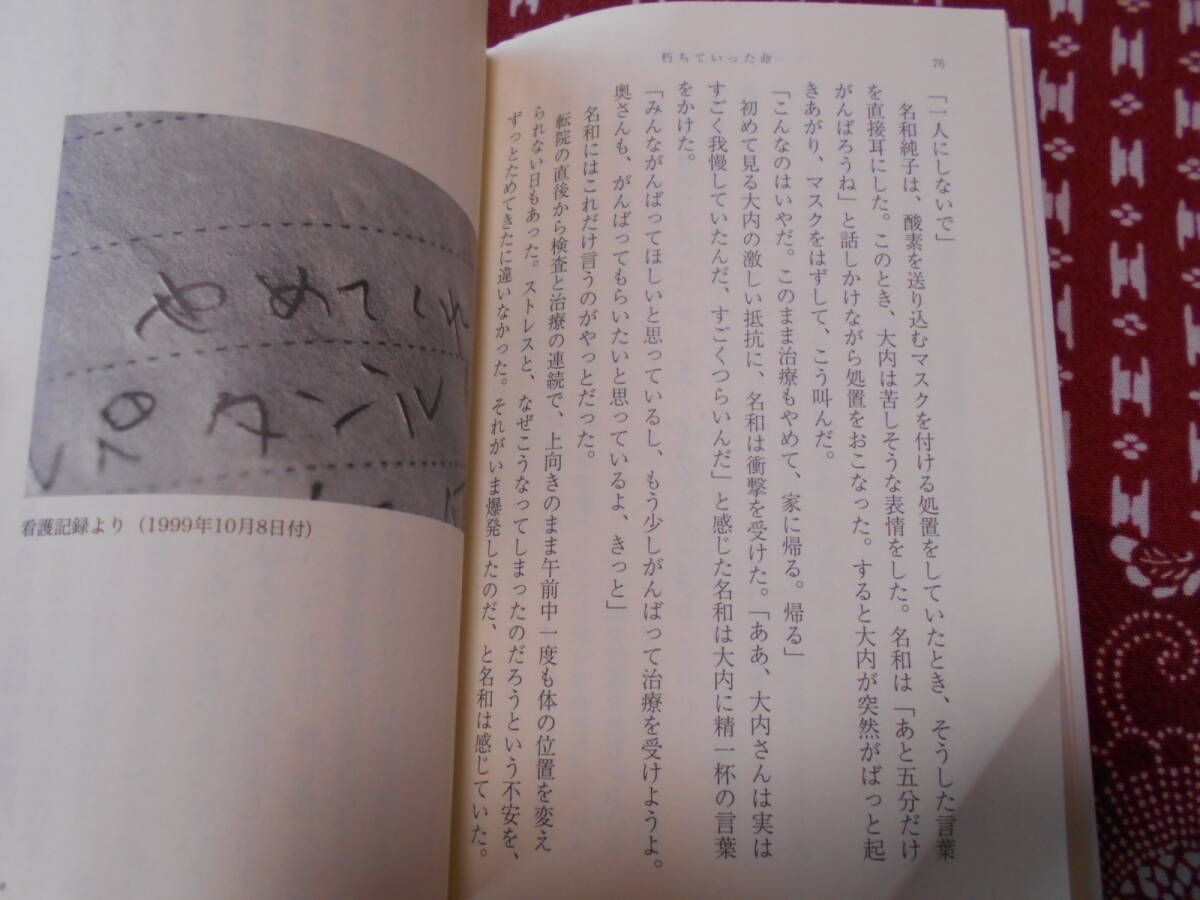 76
朽ちていった命
「一人にしないで」
名和純子は、酸素を送り込むマスクを付ける処置をしていたとき、そうした言葉
を直接耳にした。このとき、大内は苦しそうな表情をした。名和は「あと五分だけ
がんばろうね」と話しかけながら処置をおこなった。すると大内が突然がばっと起
きあがり、マスクをはずして、こう叫んだ。
「こんなのはいやだ。このまま治療もやめて、家に帰る。帰る」
初めて見る大内の激しい抵抗に、名和は衝撃を受けた。「ああ、大内さんは実は
すごく我慢していたんだ、すごくつらいんだ」と感じた名和は大内に精一杯の言葉
をかけた。
「みんながんばってほしいと思っているし、もう少しがんばって治療を受けようよ。
奥さんも、がんばってもらいたいと思っているよ、きっと」
名和にはこれだけ言うのがやっとだった。
転院の直後から検査と治療の連続で、上向きのまま午前中一度も体の位置を変え
られない日もあった。ストレスと、なぜこうなってしまったのだろうという不安を、
ずっとためてきたに違いなかった。それがいま爆発したのだ、と名和は感じていた。
やめてくれ
看護記録より（1999年10月8日付）